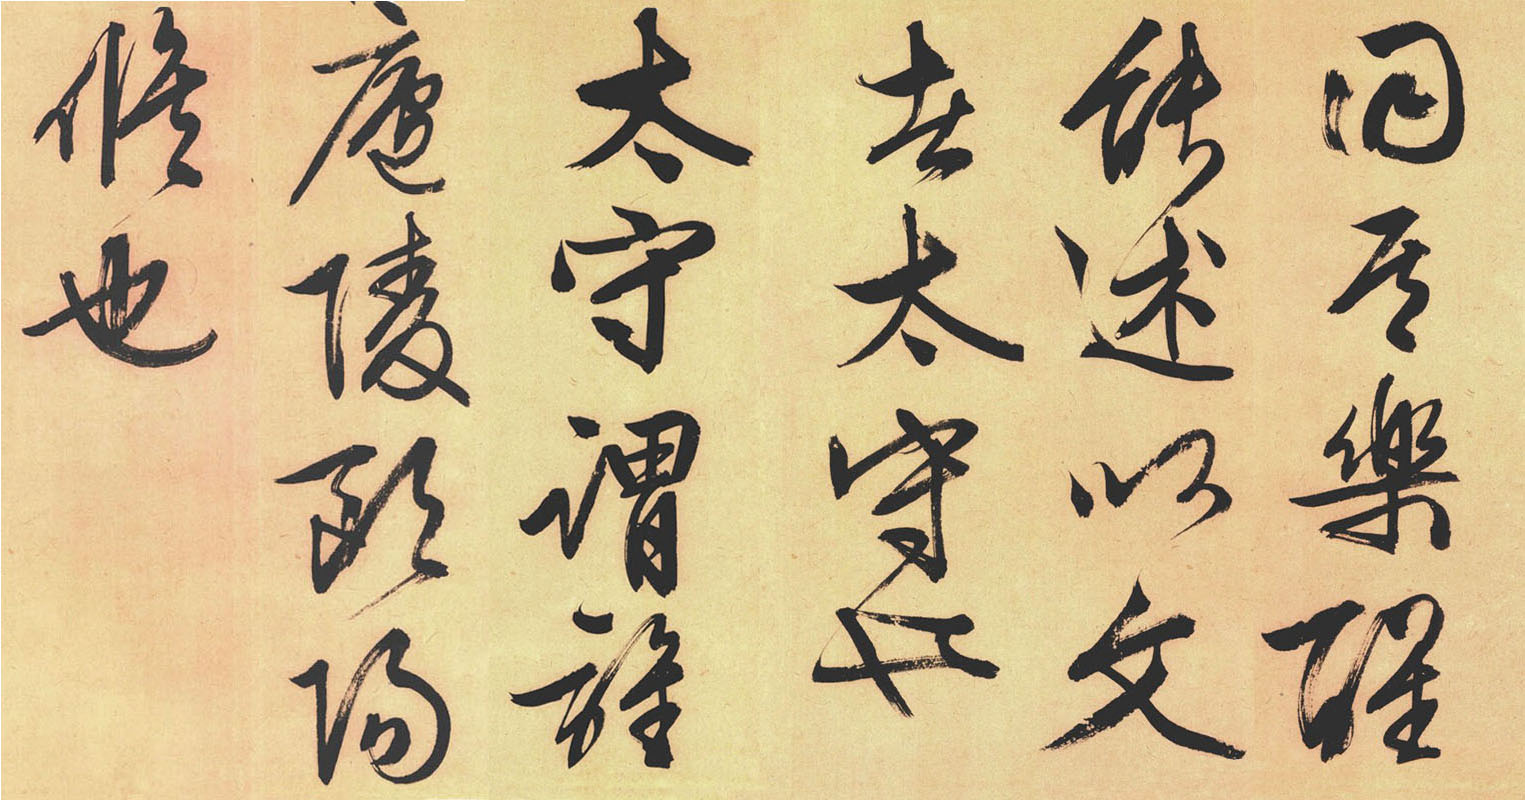 同其樂醒
能述以文
者太守也
太守謂誰
廬陵歐陽
脩也